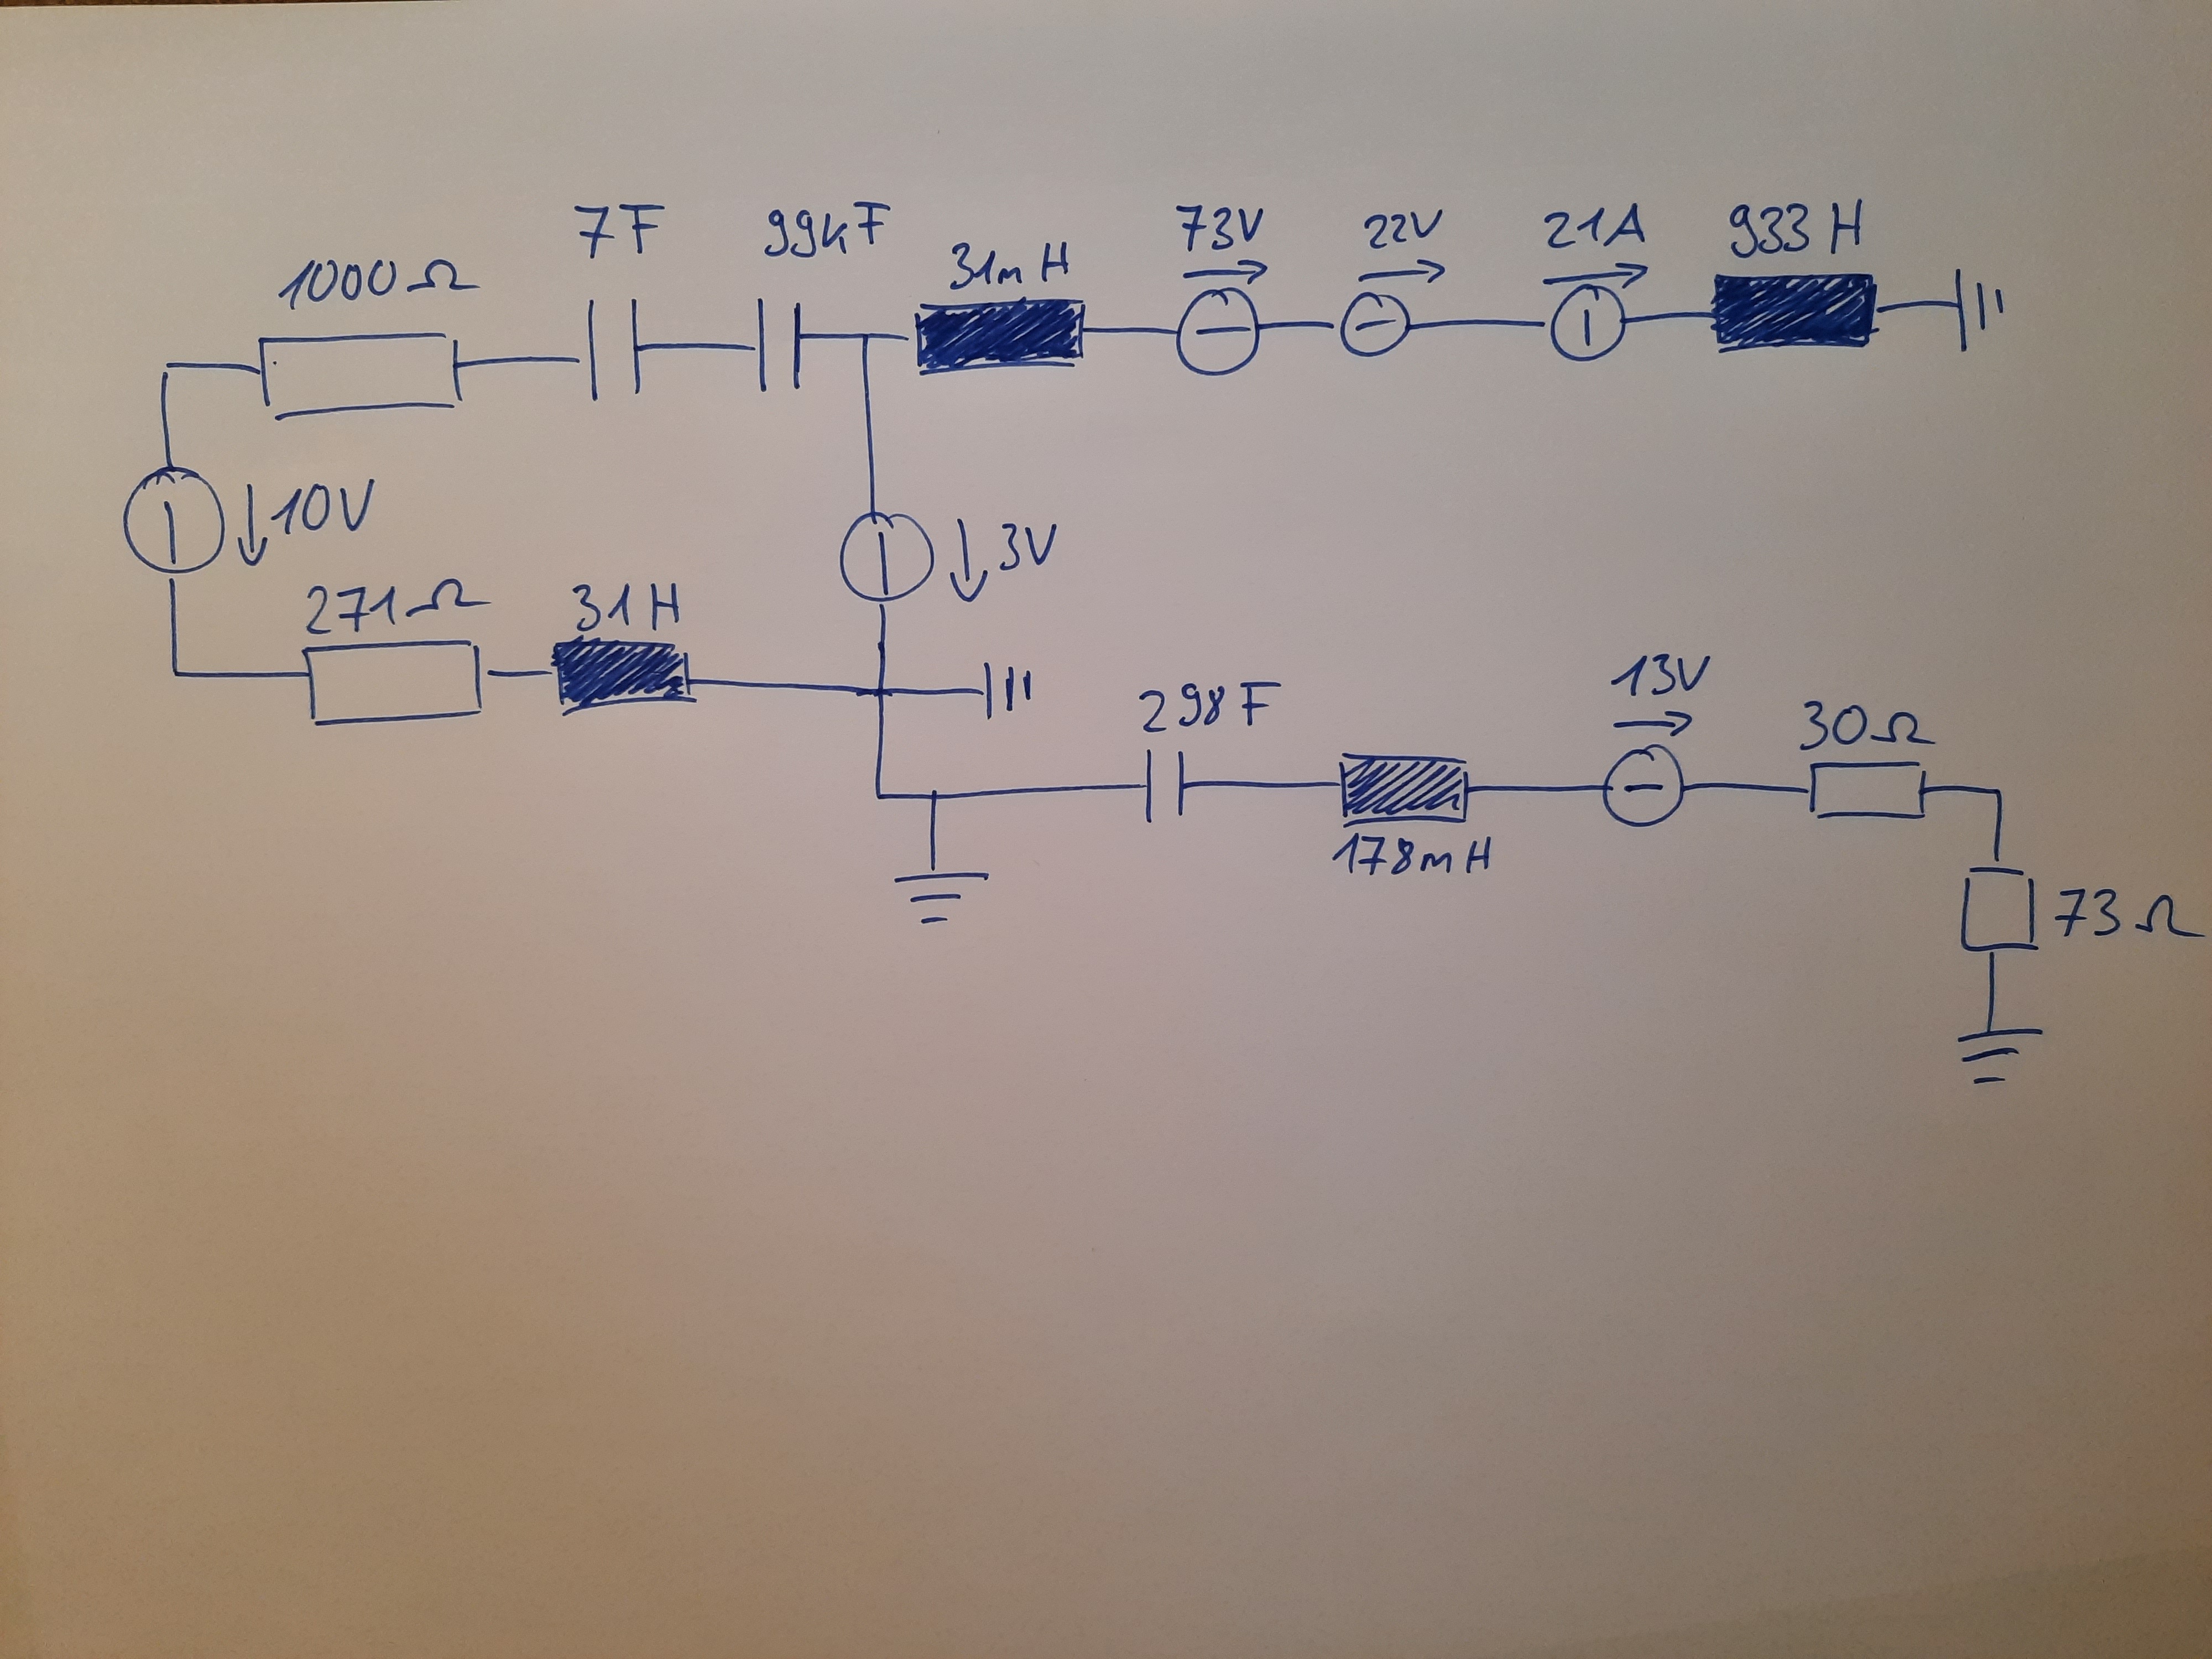 1000Ω
7F
99kF
31mH
73V
22V
21A
933H
10V
3V
271Ω
31H
298F
178mH
13V
30Ω
73Ω